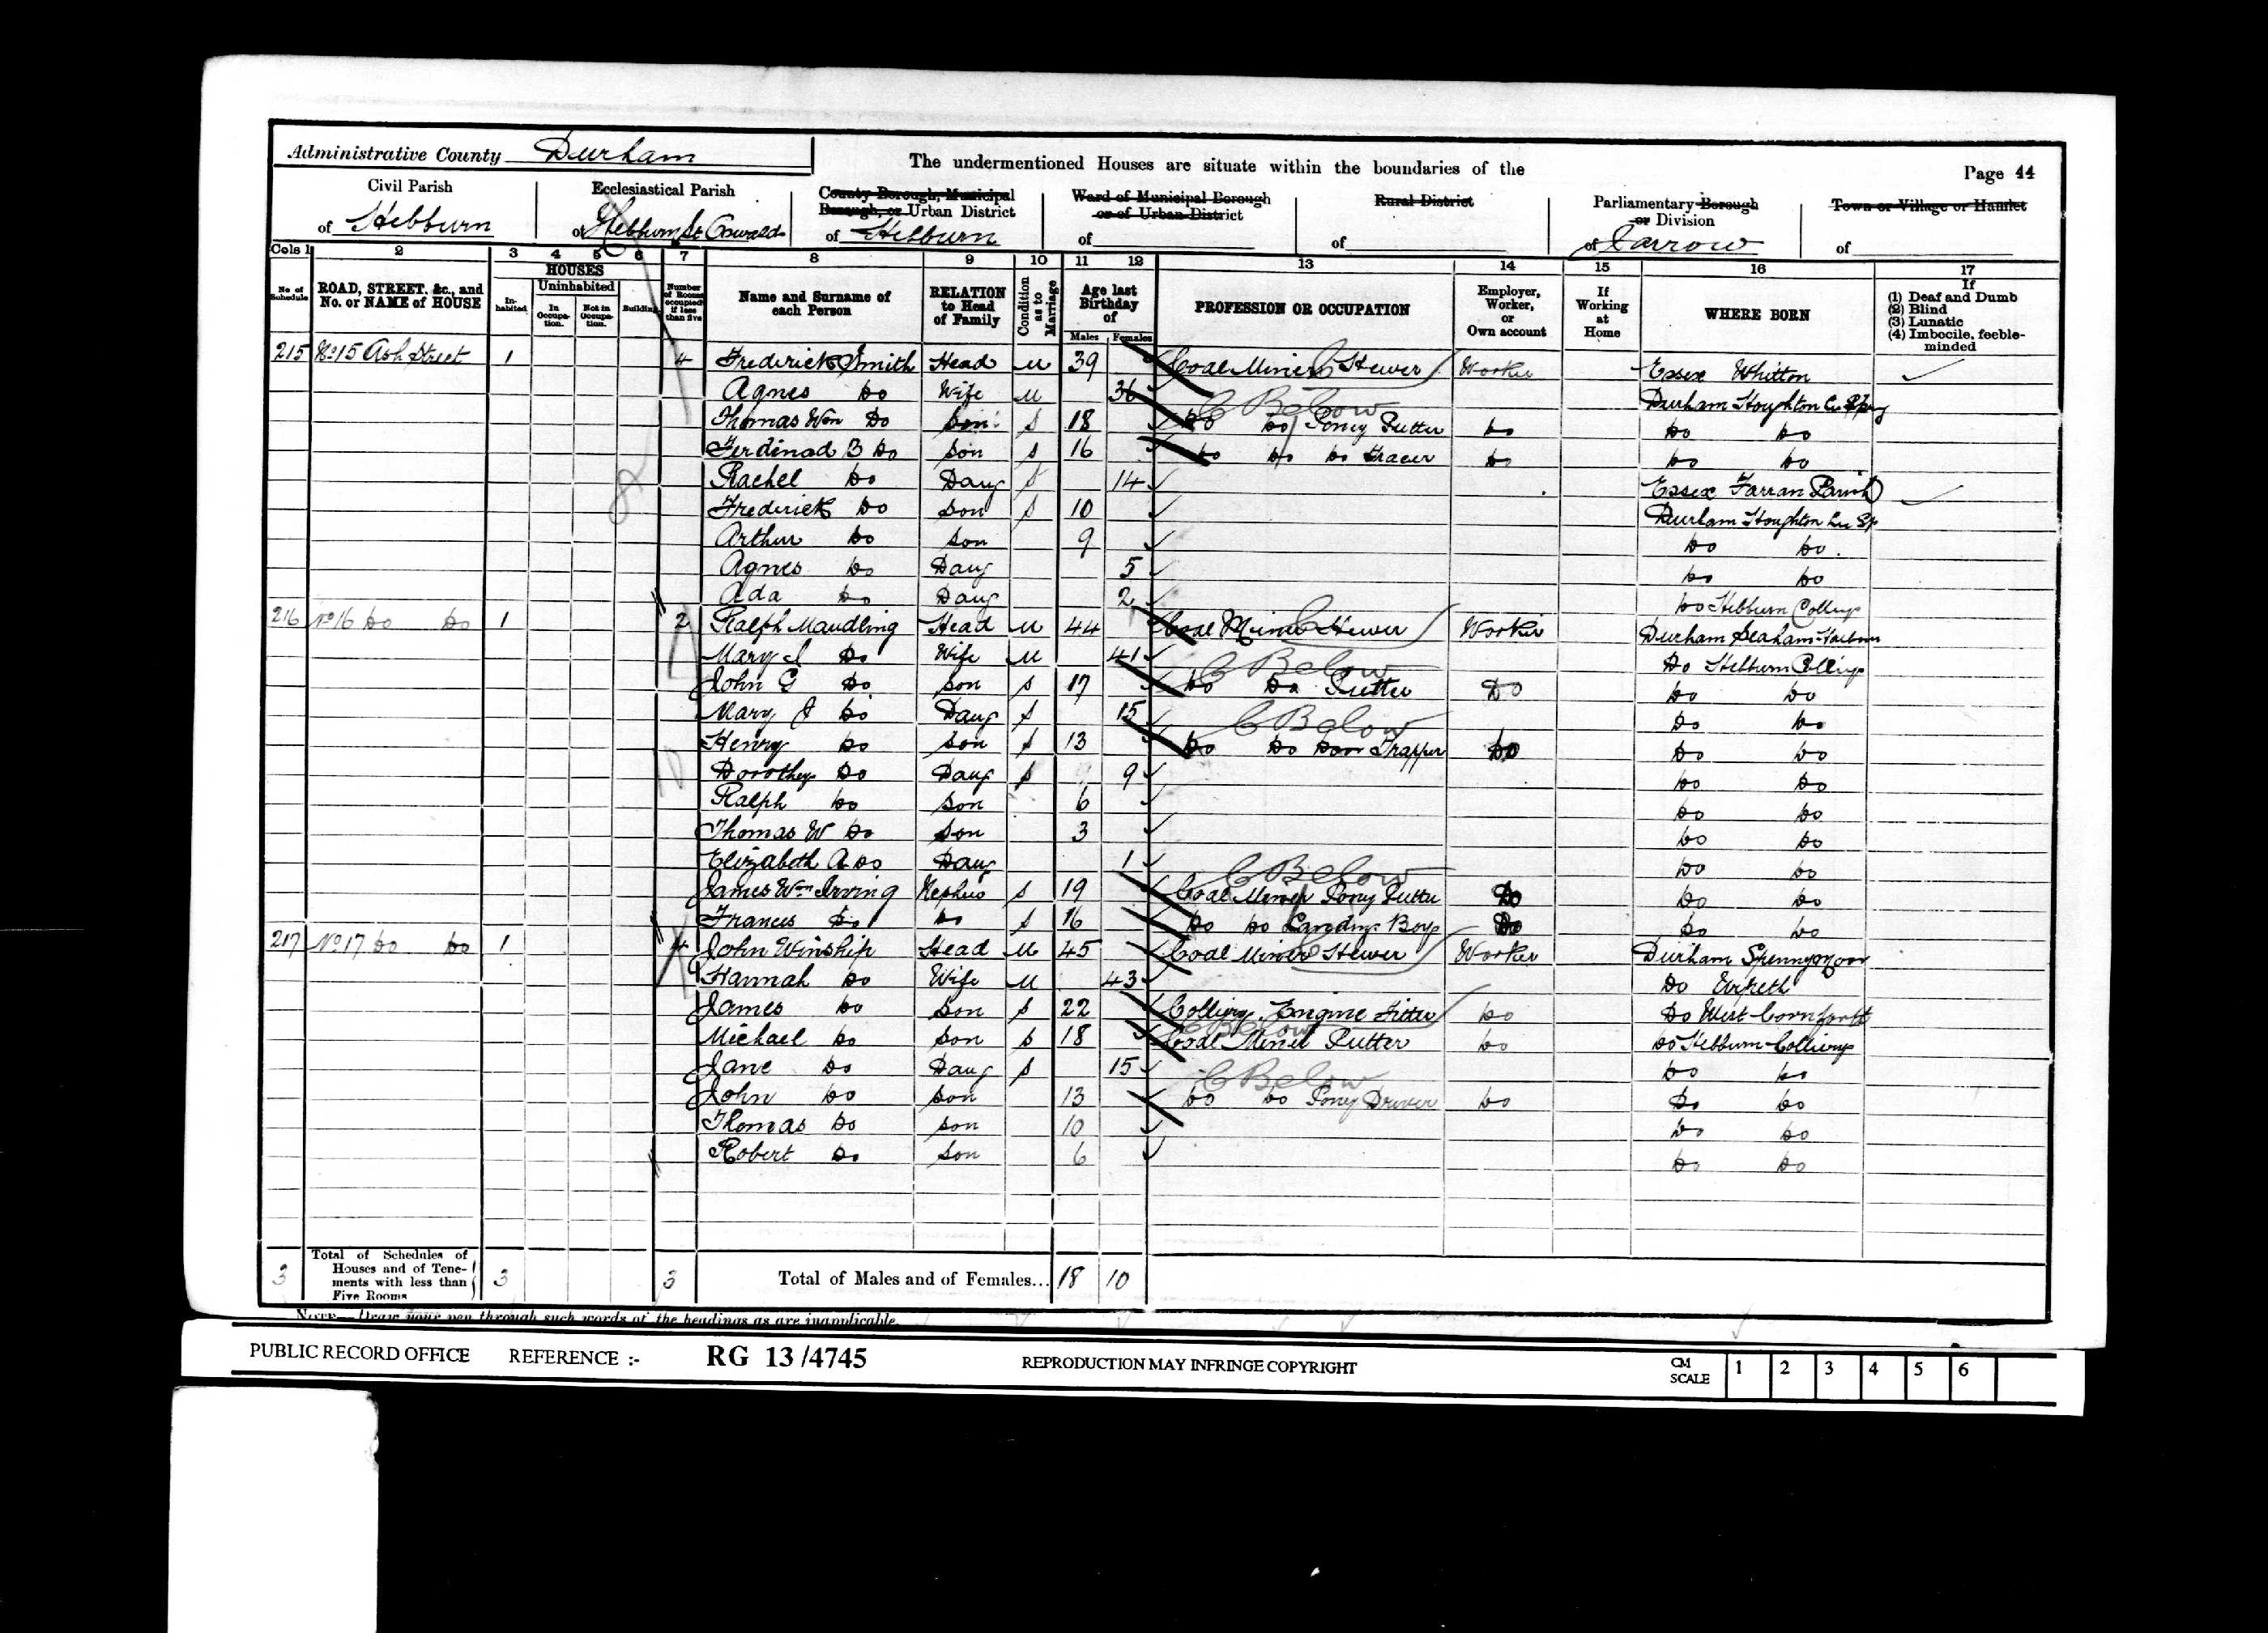 Administrative County Durham
The undermentioned Houses are situate within the boundaries of the
Page 44
Civil Parish
of Hebburn
Ecclesiastical Parish
of Hebburn St Oswald
County Borough, Municipal
Borough, or Urban District
of Hebburn
Ward of Municipal Borough
or of Urban District
of
Rural District
of
Parliamentary Borough
or Division
of Jarrow
Town or Village or Hamlet
of
Cols 1 2 3 4 5 6 7 8 9 10 11 12 13 14 15 16 17
No of Schedule
ROAD, STREET, &c., and No. or NAME of HOUSE
HOUSES
In-habited
Uninhabited
In Occupa-tion.
Not in Occupa-tion.
Building
Number of Rooms occupied if less than five
Name and Surname of each Person
RELATION to Head of Family
Condition as to Marriage
Age last Birthday of
Males Females
PROFESSION OR OCCUPATION
Employer, Worker, or Own account
If Working at Home
WHERE BORN
If
(1) Deaf and Dumb
(2) Blind
(3) Lunatic
(4) Imbecile, feeble-minded
215 No 15 Ash Street 1 4 Frederick Smith Head M 39 Coal Miner Hewer Worker Essex Whitton
Agnes Do Wife M 36 Durham Houghton Le Spg
C Below
Thomas Wm Do Son S 18 Do Do Pony Putter Do Do Do
Ferdinad B Do Son S 16 Do Do Do Do Do Do
Rachel Do Daug S 14 Essex Farran Parish
Frederick Do Son S 10 Durham Houghton Le Sp
Arthur Do Son 9 Do Do
Agnes Do Daug 5 Do Do
Ada Do Daug 2 Do Hebburn Colliery
216 No 16 Do Do 1 2 Ralph Maudling Head M 44 Coal Miner Hewer Worker Durham Seaham Harbour
Mary I Do Wife M 41 Do Hebburn Colliery
C Below
John G Do Son S 17 Do Do Putter Do Do Do
Mary J Do Daug S 15 Do Do
C Below
Henry Do Son S 13 Do Do Door Trapper Do Do Do
Dorothy Do Daug S 9 Do Do
Ralph Do Son 6 Do Do
Thomas W Do Son 3 Do Do
Elizabeth A Do Daug 1 Do Do
C Below
James Wm Irving Nephew S 19 Coal Miner Pony Putter Do Do Do
Frances Do Do S 16 Do Do Landing Boy Do Do Do
217 No 17 Do Do 1 4 John Winship Head M 45 Coal Miner Hewer Worker Durham Spennymoor
Hannah Do Wife M 43 Do Urpeth
James Do Son S 22 Colliery Engine Fitter Do Do West Cornforth
C Below
Michael Do Son S 18 Coal Miner Putter Do Do Hebburn Colliery
Jane Do Daug S 15 Do Do
C Below
John Do Son 13 Do Do Pony Driver Do Do Do
Thomas Do Son 10 Do Do
Robert Do Son 6 Do Do
3 Total of Schedules of Houses and of Tene-ments with less than Five Rooms 3 3 Total of Males and of Females... 18 10
NOTE.—Draw your pen through such words of the headings as are inapplicable.
PUBLIC RECORD OFFICE REFERENCE :- RG 13/4745 REPRODUCTION MAY INFRINGE COPYRIGHT CM SCALE 1 2 3 4 5 6